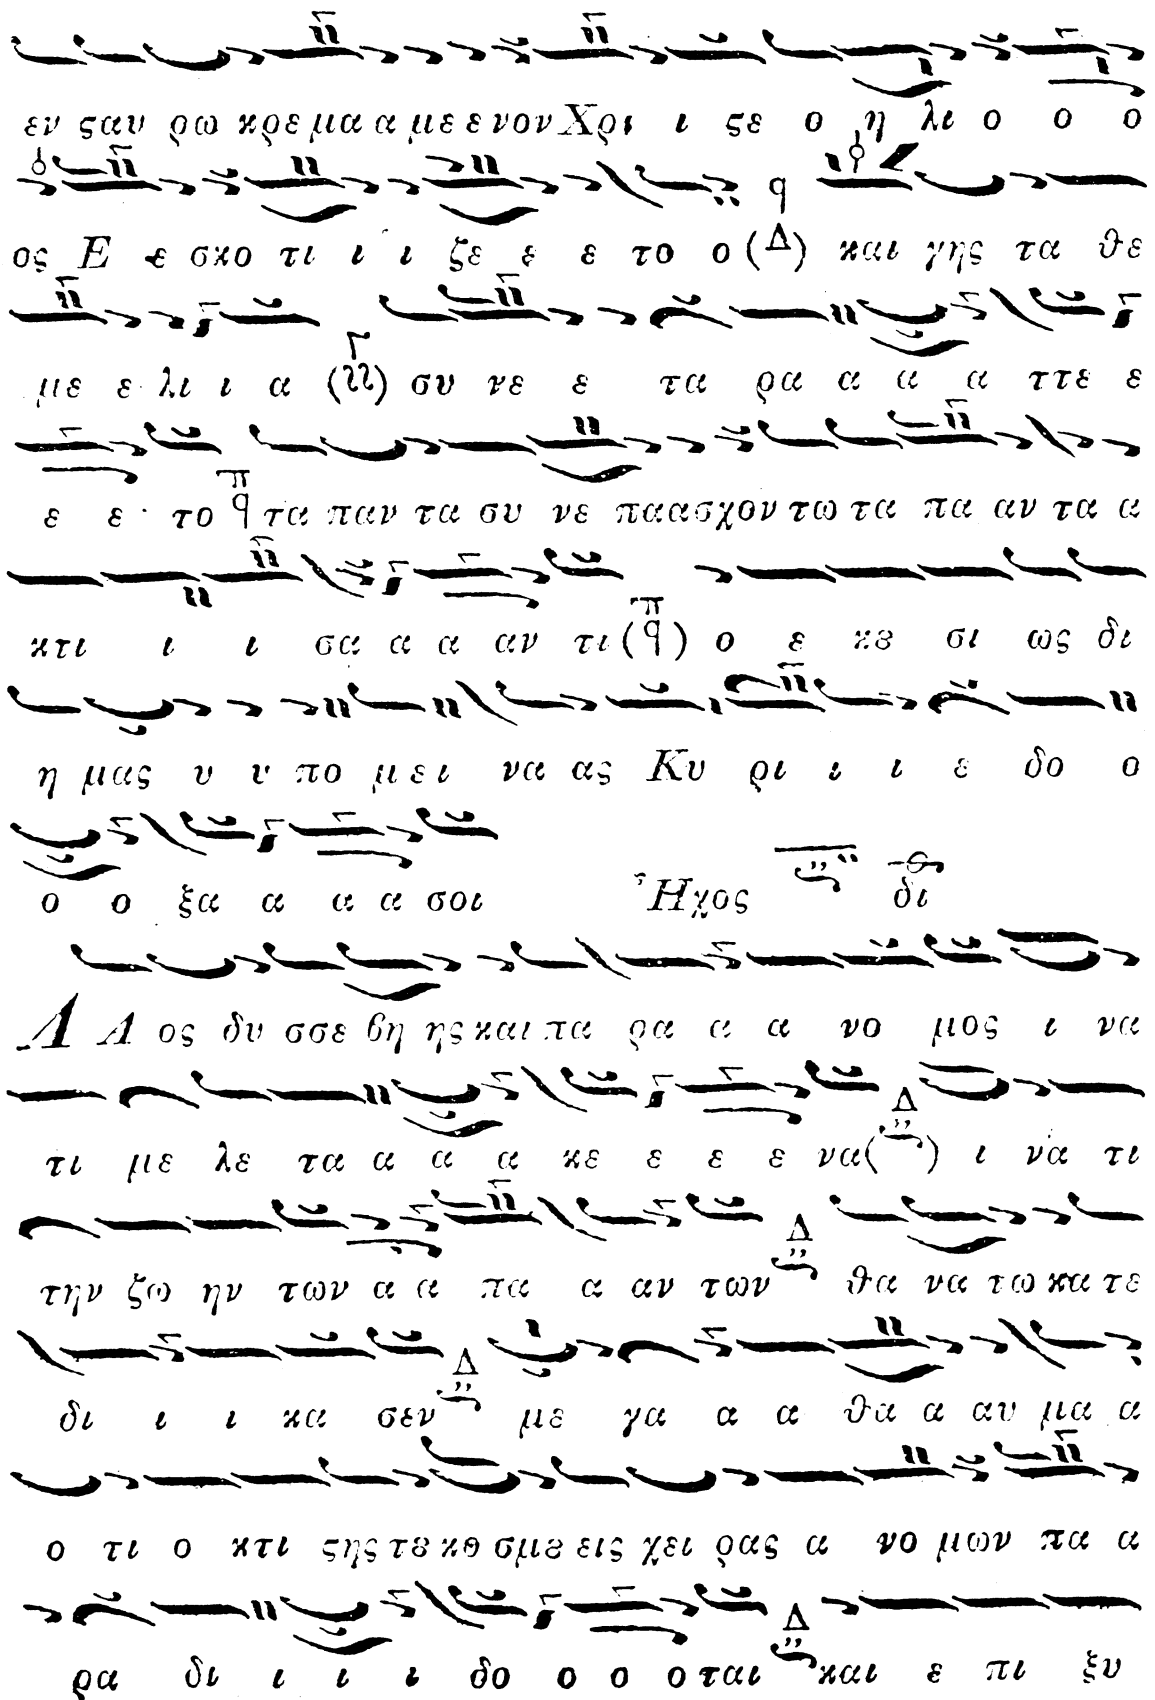 εν ϛαυ ρω κρε μα α με ε νον Χρι ι ϛε ο η λι ο ο ο
ος Ε ε σκο τι ι ι ζε ε ε το ο (Δ) και γης τα θε
με ε λι ι α (Γ) συ νε ε τα ρα α α α ττε ε
ε ε το π q τα παν τα συ νε πα α σχον τω τα πα αν τα α
κτι ι ι σα α α αν τι (π q) ο ε κȣ σι ως δι
η μας υ υ πο μει να ας Κυ ρι ι ι ε δο ο
ο ο ξα α α α σοι Ἦχος δι
Λ Α ος δυ σσε βη ης και πα ρα α α νο μος ι να
τι με λε τα α α α κε ε ε ε να (Δ) ι να τι
την ζω ην των α α πα α αν των Δ θα να τω κα τε
δι ι ι κα σεν Δ με γα α α θα α αυ μα α
ο τι ο κτι ϛης τȣ κο σμȣ εις χει ρας α νο μων πα α
ρα δι ι ι ι δο ο ο ο ται Δ και ε πι ξυ